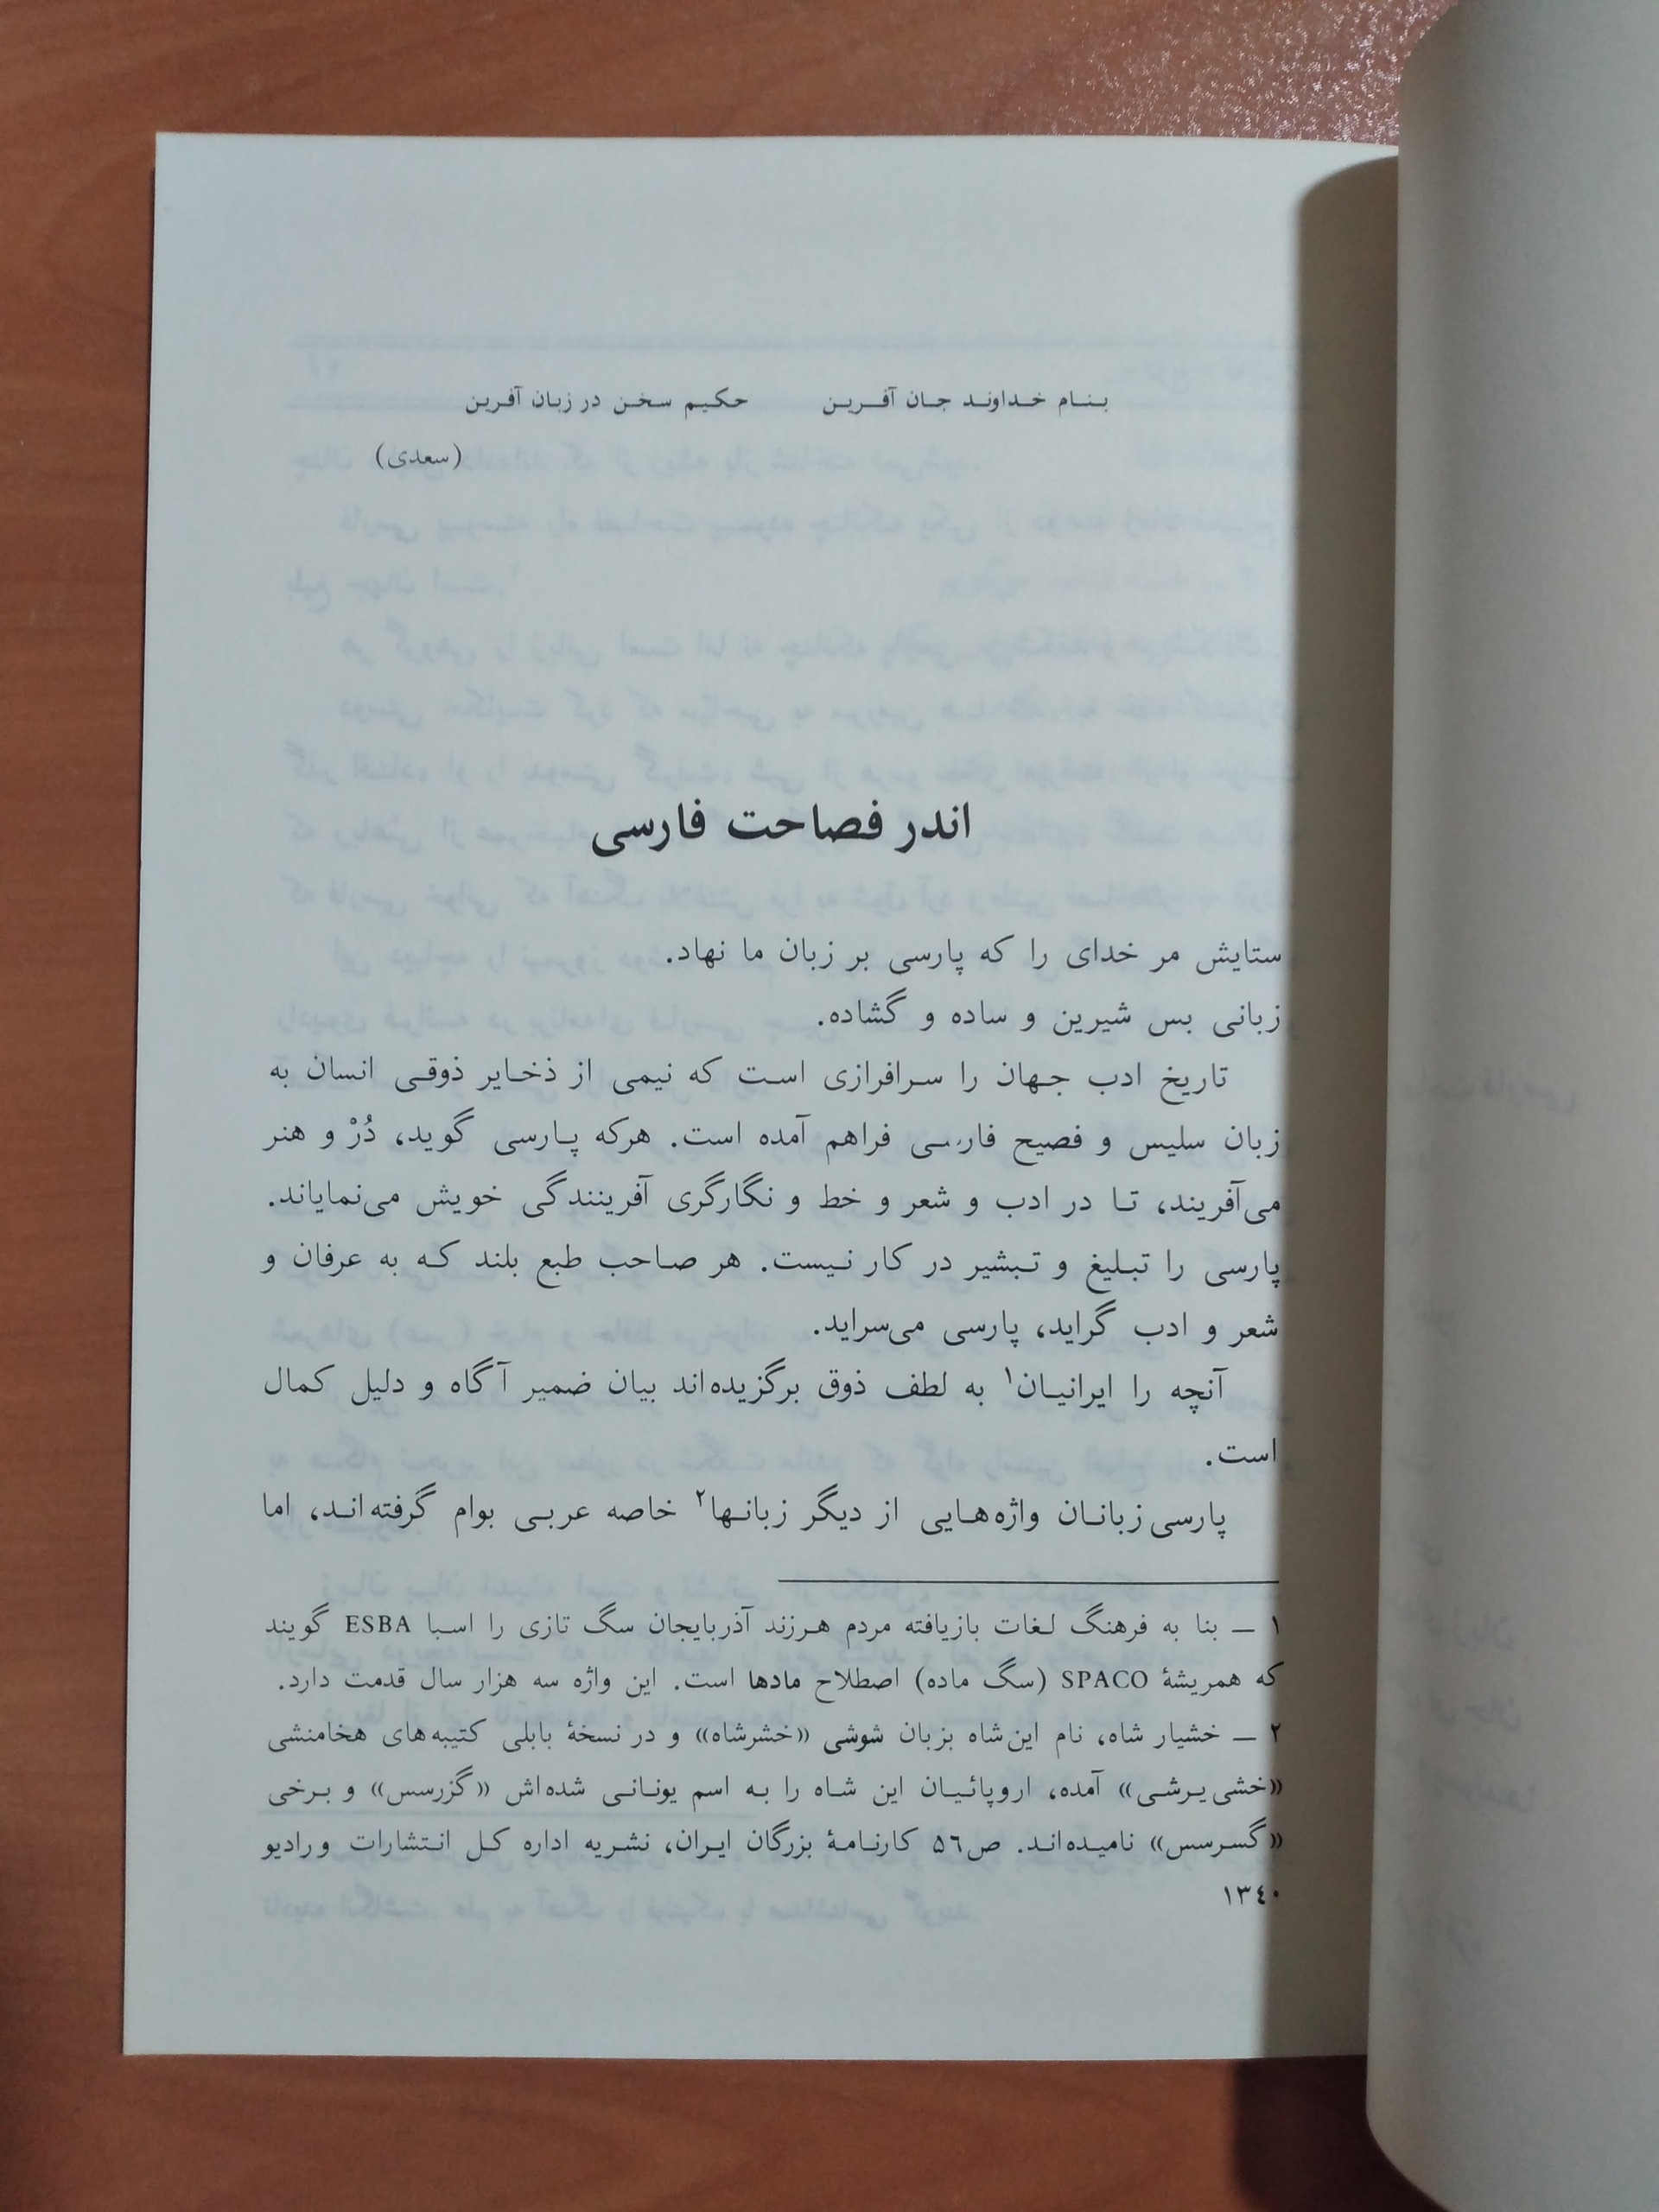 بنام خداوند جان آفرین حکیم سخن در زبان آفرین
(سعدی)
اندر فصاحت فارسی
ستایش مر خدای را که پارسی بر زبان ما نهاد.
زبانی بس شیرین و ساده و گشاده.
تاریخ ادب جهان را سرافرازی است که نیمی از ذخایر ذوقی انسان به
زبان سلیس و فصیح فارسی فراهم آمده است. هرکه پارسی گوید، دُرْ و هنر
می‌آفریند، تا در ادب و شعر و خط و نگارگری آفرینندگی خویش می‌نمایاند.
پارسی را تبلیغ و تبشیر در کار نیست. هر صاحب طبع بلند که به عرفان و
شعر و ادب گراید، پارسی می‌سراید.
آنچه را ایرانیان۱ به لطف ذوق برگزیده‌اند بیان ضمیر آگاه و دلیل کمال
است.
پارسی‌زبانان واژه‌هایی از دیگر زبانها۲ خاصه عربی بوام گرفته‌اند، اما
۱ — بنا به فرهنگ لغات بازیافته مردم هرزند آذربایجان سگ تازی را اسبا ESBA گویند
که همریشهٔ SPACO (سگ ماده) اصطلاح مادها است. این واژه سه هزار سال قدمت دارد.
۲ — خشیار شاه، نام این‌شاه بزبان شوشی «خشرشاه» و در نسخهٔ بابلی کتیبه‌های هخامنشی
«خشی‌یرشی» آمده، اروپائیان این شاه را به اسم یونانی شده‌اش «گزرسس» و برخی
«گسرسس» نامیده‌اند. ص۵۶ کارنامهٔ بزرگان ایران، نشریه اداره کل انتشارات و رادیو
۱۳۴۰